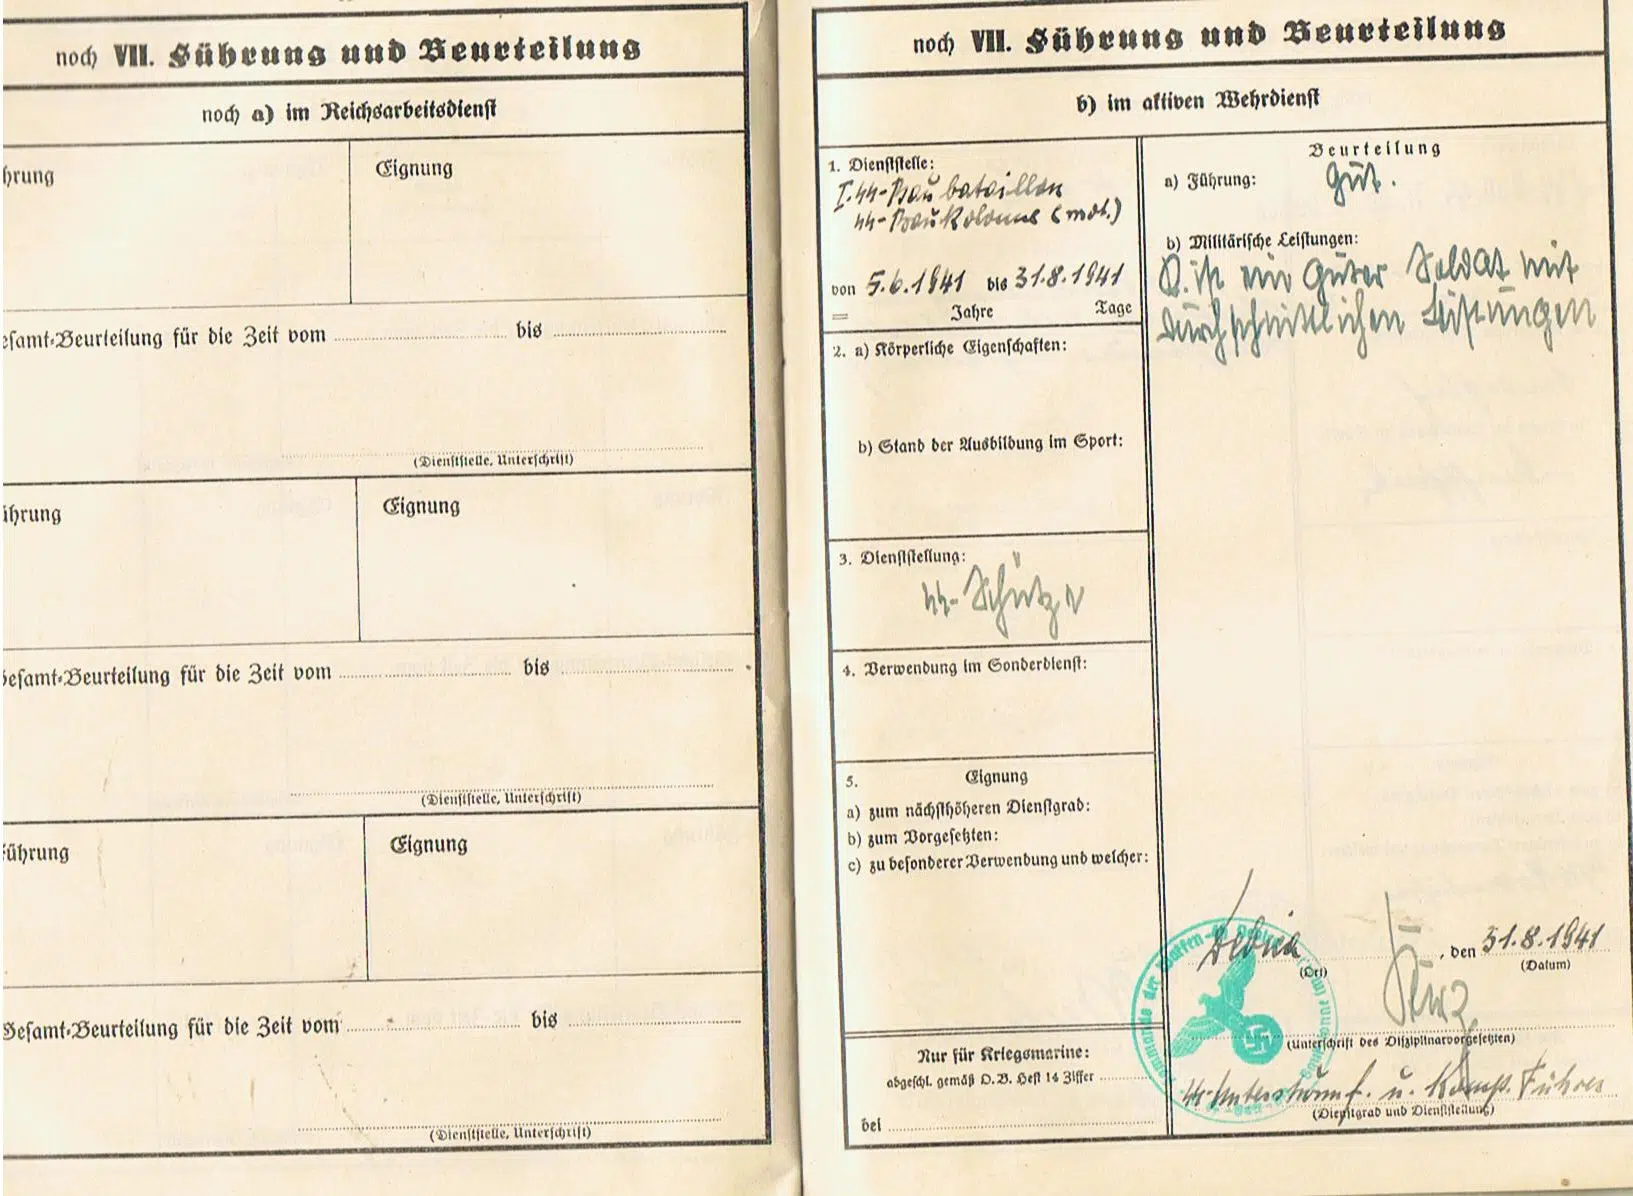 noch VII. Führung und Beurteilung
noch a) im Reichsarbeitsdienst
hrung
Eignung
esamt-Beurteilung für die Zeit vom bis
(Dienststelle, Unterschrift)
ührung
Eignung
Gesamt-Beurteilung für die Zeit vom bis
(Dienststelle, Unterschrift)
Führung
Eignung
Gesamt-Beurteilung für die Zeit vom bis
(Dienststelle, Unterschrift)
noch VII. Führung und Beurteilung
b) im aktiven Wehrdienst
1. Dienststelle:
I. SS-Baubataillon
SS-Baukolonne (mot.)
von 5.6.1941 bis 31.8.1941
Jahre Tage
2. a) Körperliche Eigenschaften:
b) Stand der Ausbildung im Sport:
3. Dienststellung:
SS-Schütze
4. Verwendung im Sonderdienst:
5. Eignung
a) zum nächsthöheren Dienstgrad:
b) zum Vorgesetzten:
c) zu besonderer Verwendung und welcher:
Nur für Kriegsmarine:
abgeschl. gemäß D.B. Heft 14 Ziffer
bei
Beurteilung
a) Führung: Gut.
b) Militärische Leistungen:
D. ist ein guter Soldat mit
durchschnittlichen Leistungen
Debica, den 31.8.1941
(Ort) (Datum)
(Unterschrift des Disziplinarvorgesetzten)
SS-Untersturmf. u. Komp. Führer
(Dienstgrad und Dienststellung)
Kommando der Waffen-SS